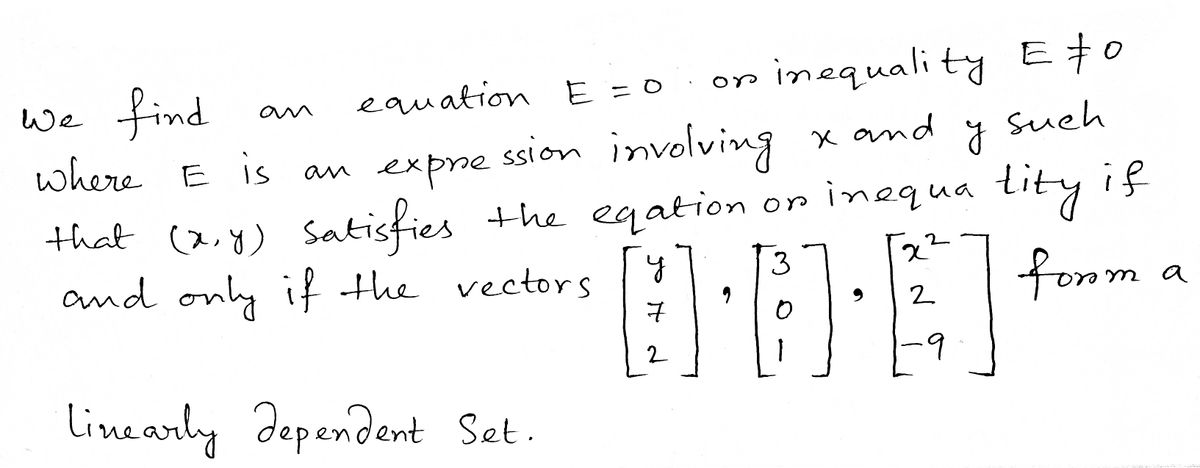 We find an equation E = 0 or inequality E ≠ 0
where E is an expression involving x and y such
that (x,y) satisfies the eqation or inequatity if
and only if the vectors [y 7 2], [3 0 1], [x² 2 -9] form a
linearly dependent set.